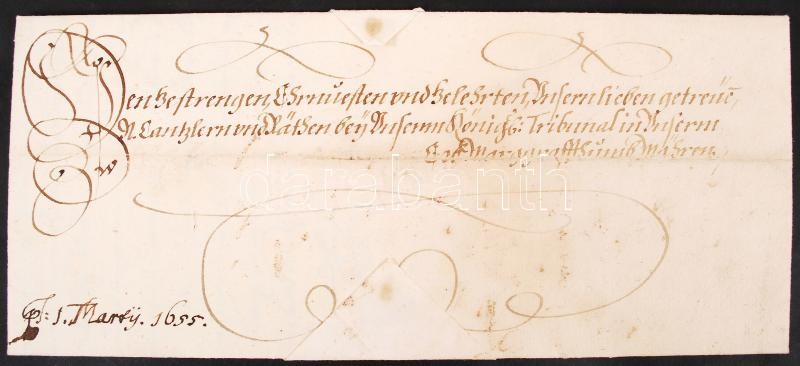 Den Gestrengen, Ehrnuesten vnd Gelehrten, Vnsern lieben getreüe,
N. Cantzlern vnd Räthen bey Vnserm Königl: Tribunal in Vnserm
Erb Marggraffthumb Mähren.
darabanth
Pt: 1. Martÿ. 1655.